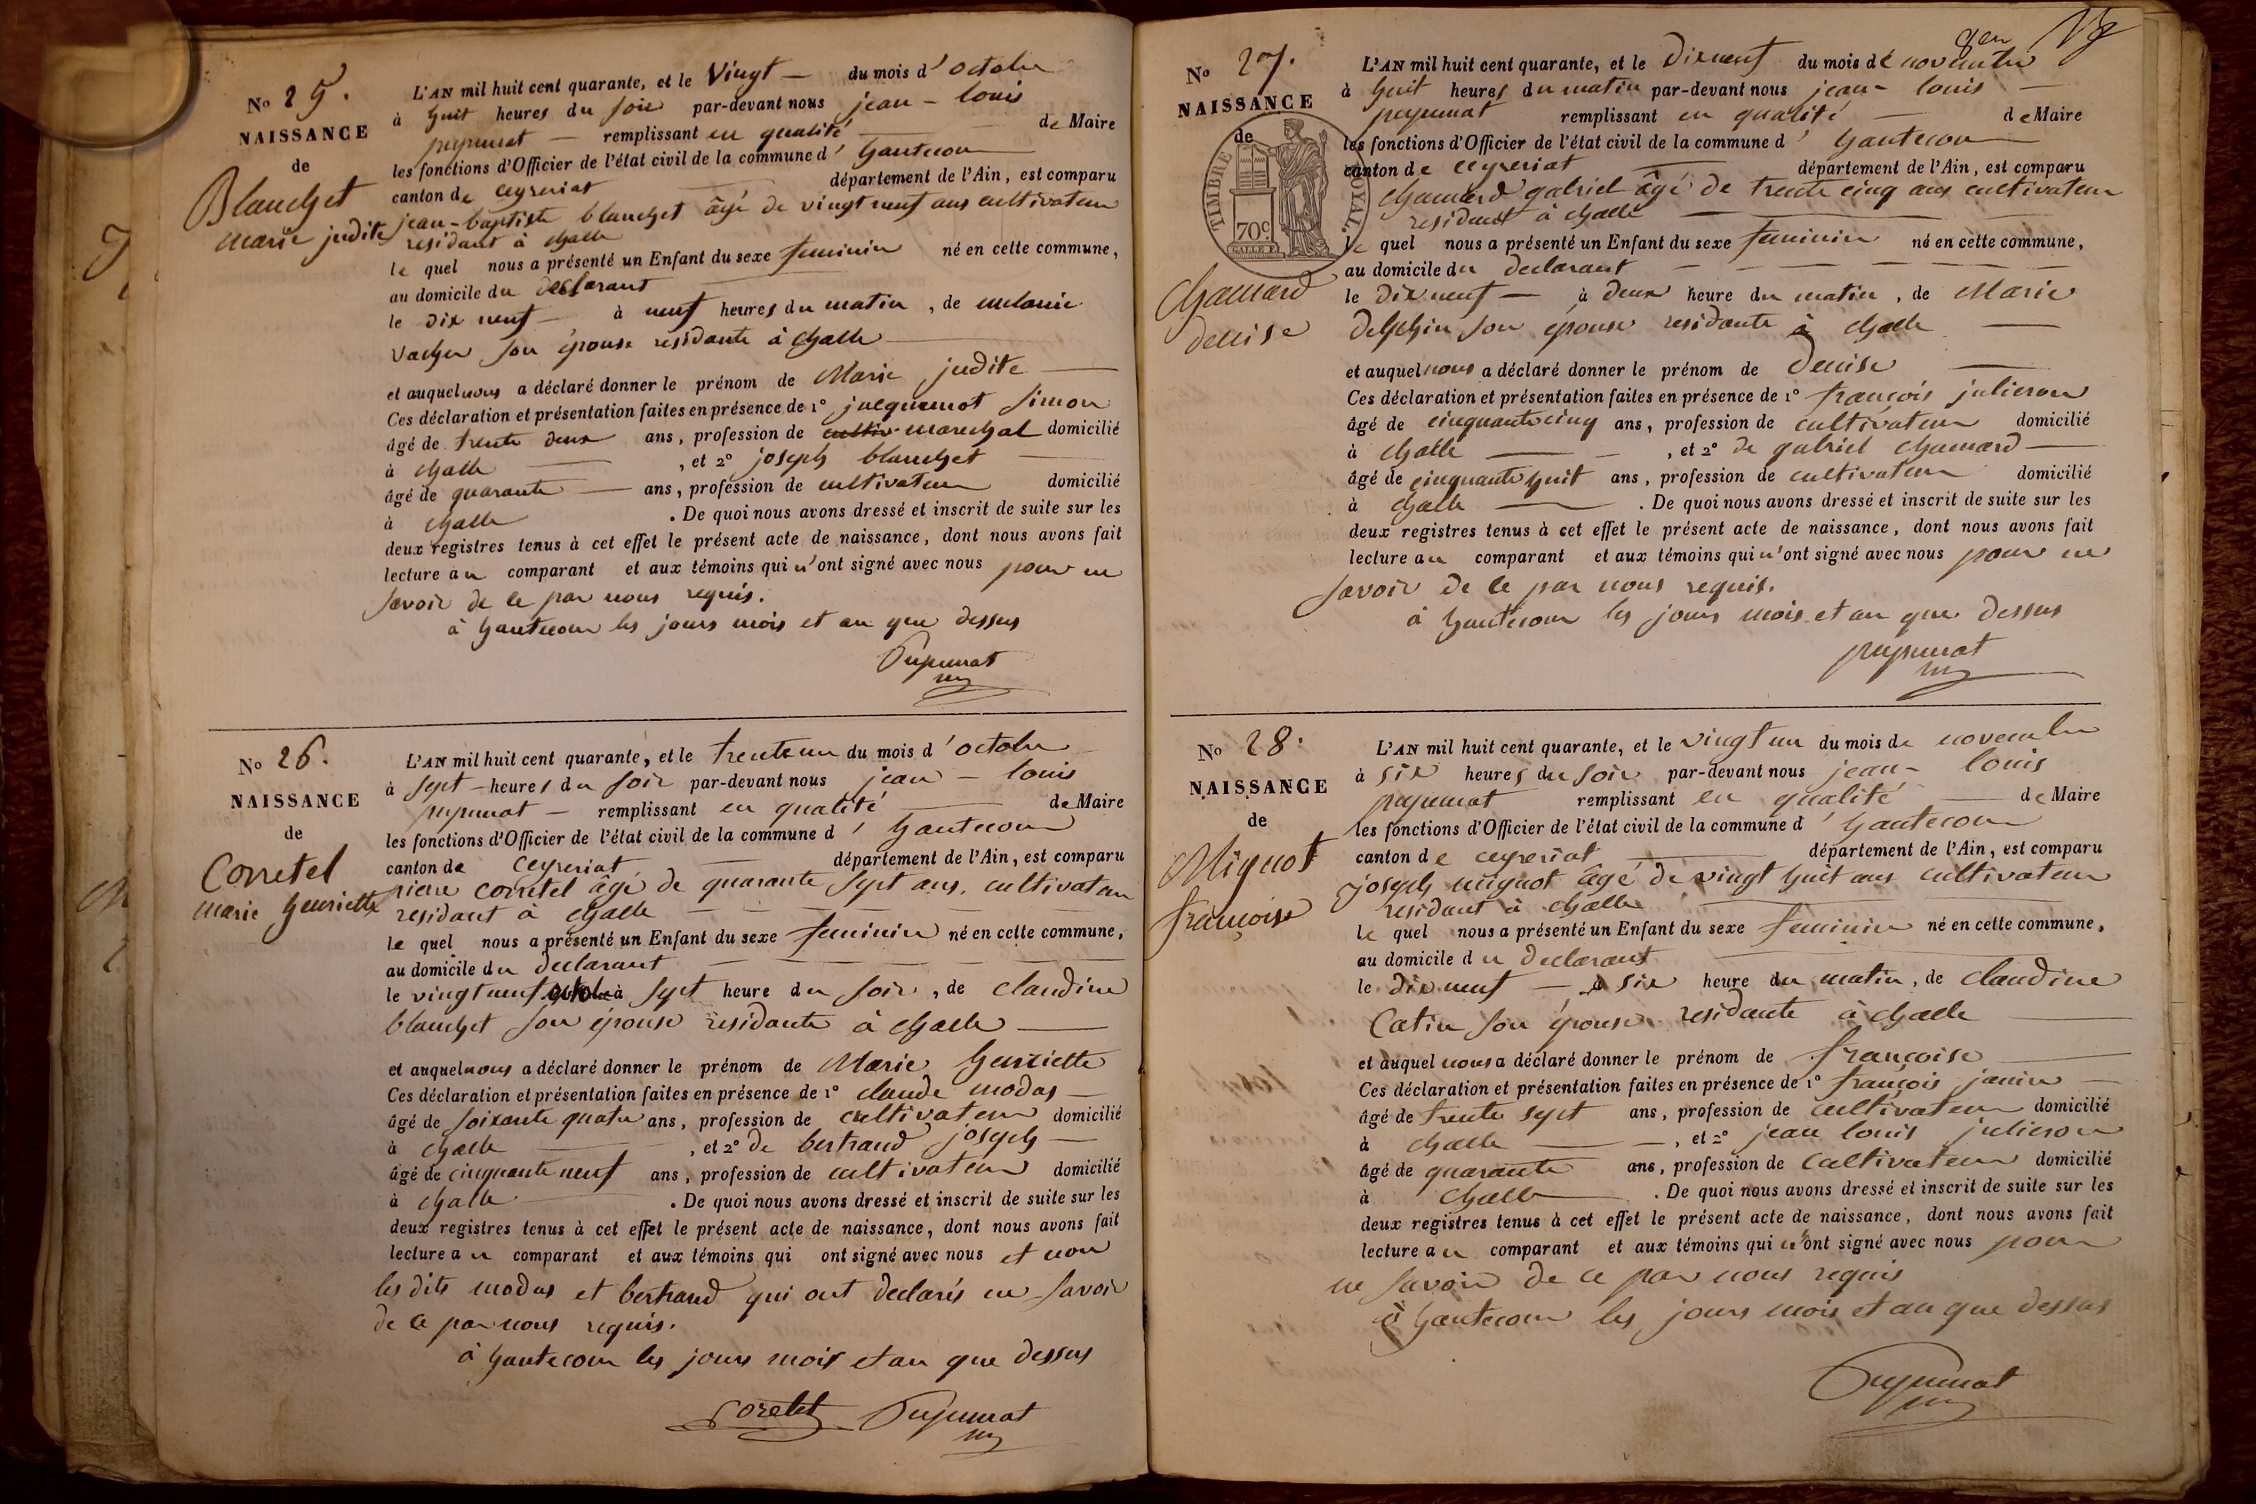 No 25.
NAISSANCE
de
Blanchet
marie judite
L'AN mil huit cent quarante, et le Vingt du mois d'octobre
à huit heures du soir par-devant nous jean-louis
pupunat remplissant en qualité de Maire
les fonctions d'Officier de l'état civil de la commune d'hautecour
canton de ceyzeriat département de l'Ain, est comparu
jean-baptiste blanchet âgé de vingt neuf ans cultivateur
residant à challe
le quel nous a présenté un Enfant du sexe feminin né en cette commune,
au domicile du declarant
le dix neuf à neuf heures du matin, de melanie
vacher son épouse residante à challe
et auquel nous a déclaré donner le prénom de Marie judite
Ces déclaration et présentation faites en présence de 1° jacquemot simon
âgé de trente deux ans, profession de cultiv marechal domicilié
à challe, et 2° joseph blanchet
âgé de quarante ans, profession de cultivateur domicilié
à challe. De quoi nous avons dressé et inscrit de suite sur les
deux registres tenus à cet effet le présent acte de naissance, dont nous avons fait
lecture au comparant et aux témoins qui n'ont signé avec nous pour ne
savoir de ce par nous requis.
à hautecour les jours mois et an que dessus
Pupunat
No 26.
NAISSANCE
de
Corretel
marie henriette
L'AN mil huit cent quarante, et le trente un du mois d'octobre
à sept heures du soir par-devant nous jean-louis
pupunat remplissant en qualité de Maire
les fonctions d'Officier de l'état civil de la commune d'hautecour
canton de ceyzeriat département de l'Ain, est comparu
pierre corretel âgé de quarante sept ans, cultivateur
residant à challe
le quel nous a présenté un Enfant du sexe feminin né en cette commune,
au domicile du declarant
le vingt neuf octobre à sept heure du soir, de claudine
blanchet son épouse residante à challe
et auquel nous a déclaré donner le prénom de Marie henriette
Ces déclaration et présentation faites en présence de 1° claude modas
âgé de soixante quatre ans, profession de cultivateur domicilié
à challe, et 2° de bertrand joseph
âgé de cinquante neuf ans, profession de cultivateur domicilié
à challe. De quoi nous avons dressé et inscrit de suite sur les
deux registres tenus à cet effet le présent acte de naissance, dont nous avons fait
lecture au comparant et aux témoins qui ont signé avec nous et non
les dits modas et bertrand qui ont declarés ne savoir
de ce par nous requis.
à hautecour les jours mois et an que dessus
Coretel Pupunat
No 27.
NAISSANCE
de
TIMBRE ROYAL.
70c.
chamard
denise
L'AN mil huit cent quarante, et le Dix neuf du mois de novembre
à huit heures du matin par-devant nous jean-louis
pupunat remplissant en qualité de Maire
les fonctions d'Officier de l'état civil de la commune d'hautecour
canton de ceyzeriat département de l'Ain, est comparu
chamard gabriel âgé de trente cinq ans cultivateur
residant à challe
le quel nous a présenté un Enfant du sexe feminin né en cette commune,
au domicile du declarant
le dix neuf à deux heure du matin, de Marie
delphin son épouse residante à challe
et auquel nous a déclaré donner le prénom de denise
Ces déclaration et présentation faites en présence de 1° françois julieron
âgé de cinquante cinq ans, profession de cultivateur domicilié
à challe, et 2° de gabriel chamard
âgé de cinquante huit ans, profession de cultivateur domicilié
à challe. De quoi nous avons dressé et inscrit de suite sur les
deux registres tenus à cet effet le présent acte de naissance, dont nous avons fait
lecture au comparant et aux témoins qui n'ont signé avec nous pour ne
savoir de ce par nous requis.
à hautecour les jours mois et an que dessus
pupunat
No 28.
NAISSANCE
de
Mignot
françoise
L'AN mil huit cent quarante, et le vingt un du mois de novembre
à six heures du soir par-devant nous jean-louis
pupunat remplissant en qualité de Maire
les fonctions d'Officier de l'état civil de la commune d'hautecour
canton de ceyzeriat département de l'Ain, est comparu
joseph mignot âgé de vingt huit ans cultivateur
residant à challe
le quel nous a présenté un Enfant du sexe feminin né en cette commune,
au domicile du declarant
le dix neuf à six heure du matin, de claudine
Catin son épouse residante à challe
et auquel nous a déclaré donner le prénom de françoise
Ces déclaration et présentation faites en présence de 1° françois janin
âgé de trente sept ans, profession de cultivateur domicilié
à challe, et 2° jean louis julieron
âgé de quarante ans, profession de cultivateur domicilié
à challe. De quoi nous avons dressé et inscrit de suite sur les
deux registres tenus à cet effet le présent acte de naissance, dont nous avons fait
lecture au comparant et aux témoins qui n'ont signé avec nous pour
ne savoir de ce par nous requis
à hautecour les jours mois et an que dessus
Pupunat